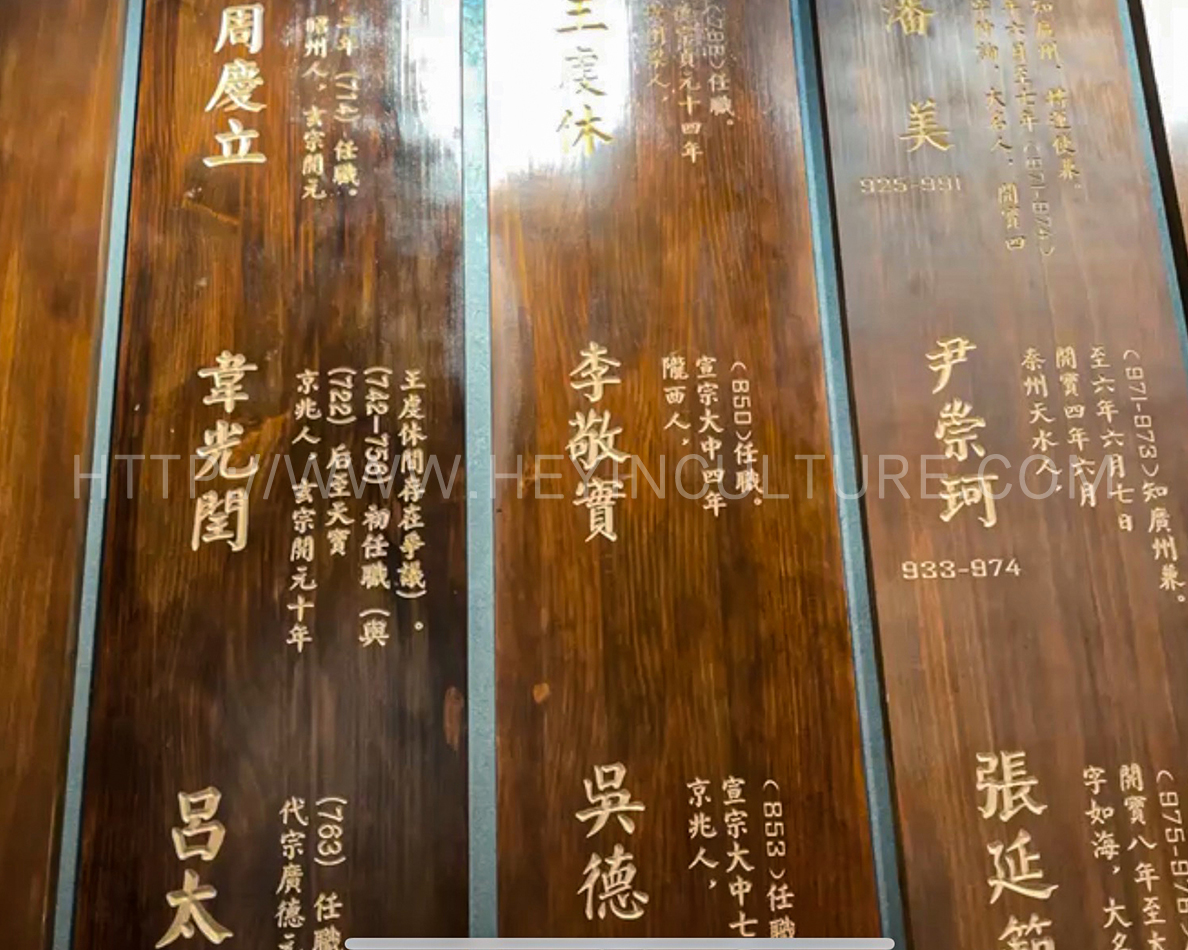 周慶立
昭州人，玄宗開元
二年 (714) 任職。
韋光閏
京兆人，玄宗開元十年
(722) 后至天寶
(742-750) 初任職 (與
王虔休間存在爭議) 。
呂太
代宗廣德元
(763) 任職
王虔休
德宗貞元十四年
(798)任職。
李敬實
隴西人，
宣宗大中四年
(850)任職。
吳德
京兆人，
宣宗大中七
(853)任職
潘美
925-991
大名人，開寶四
年六月至七年(971-974)
知廣州，轉運使兼。
尹崇珂
933-974
秦州天水人，
開寶四年六月
至六年六月七日
(971-973)知廣州兼。
張延
字如海，大名
開寶八年至
(975-978
HTTP//WWW.HEYINCULTURE.COM